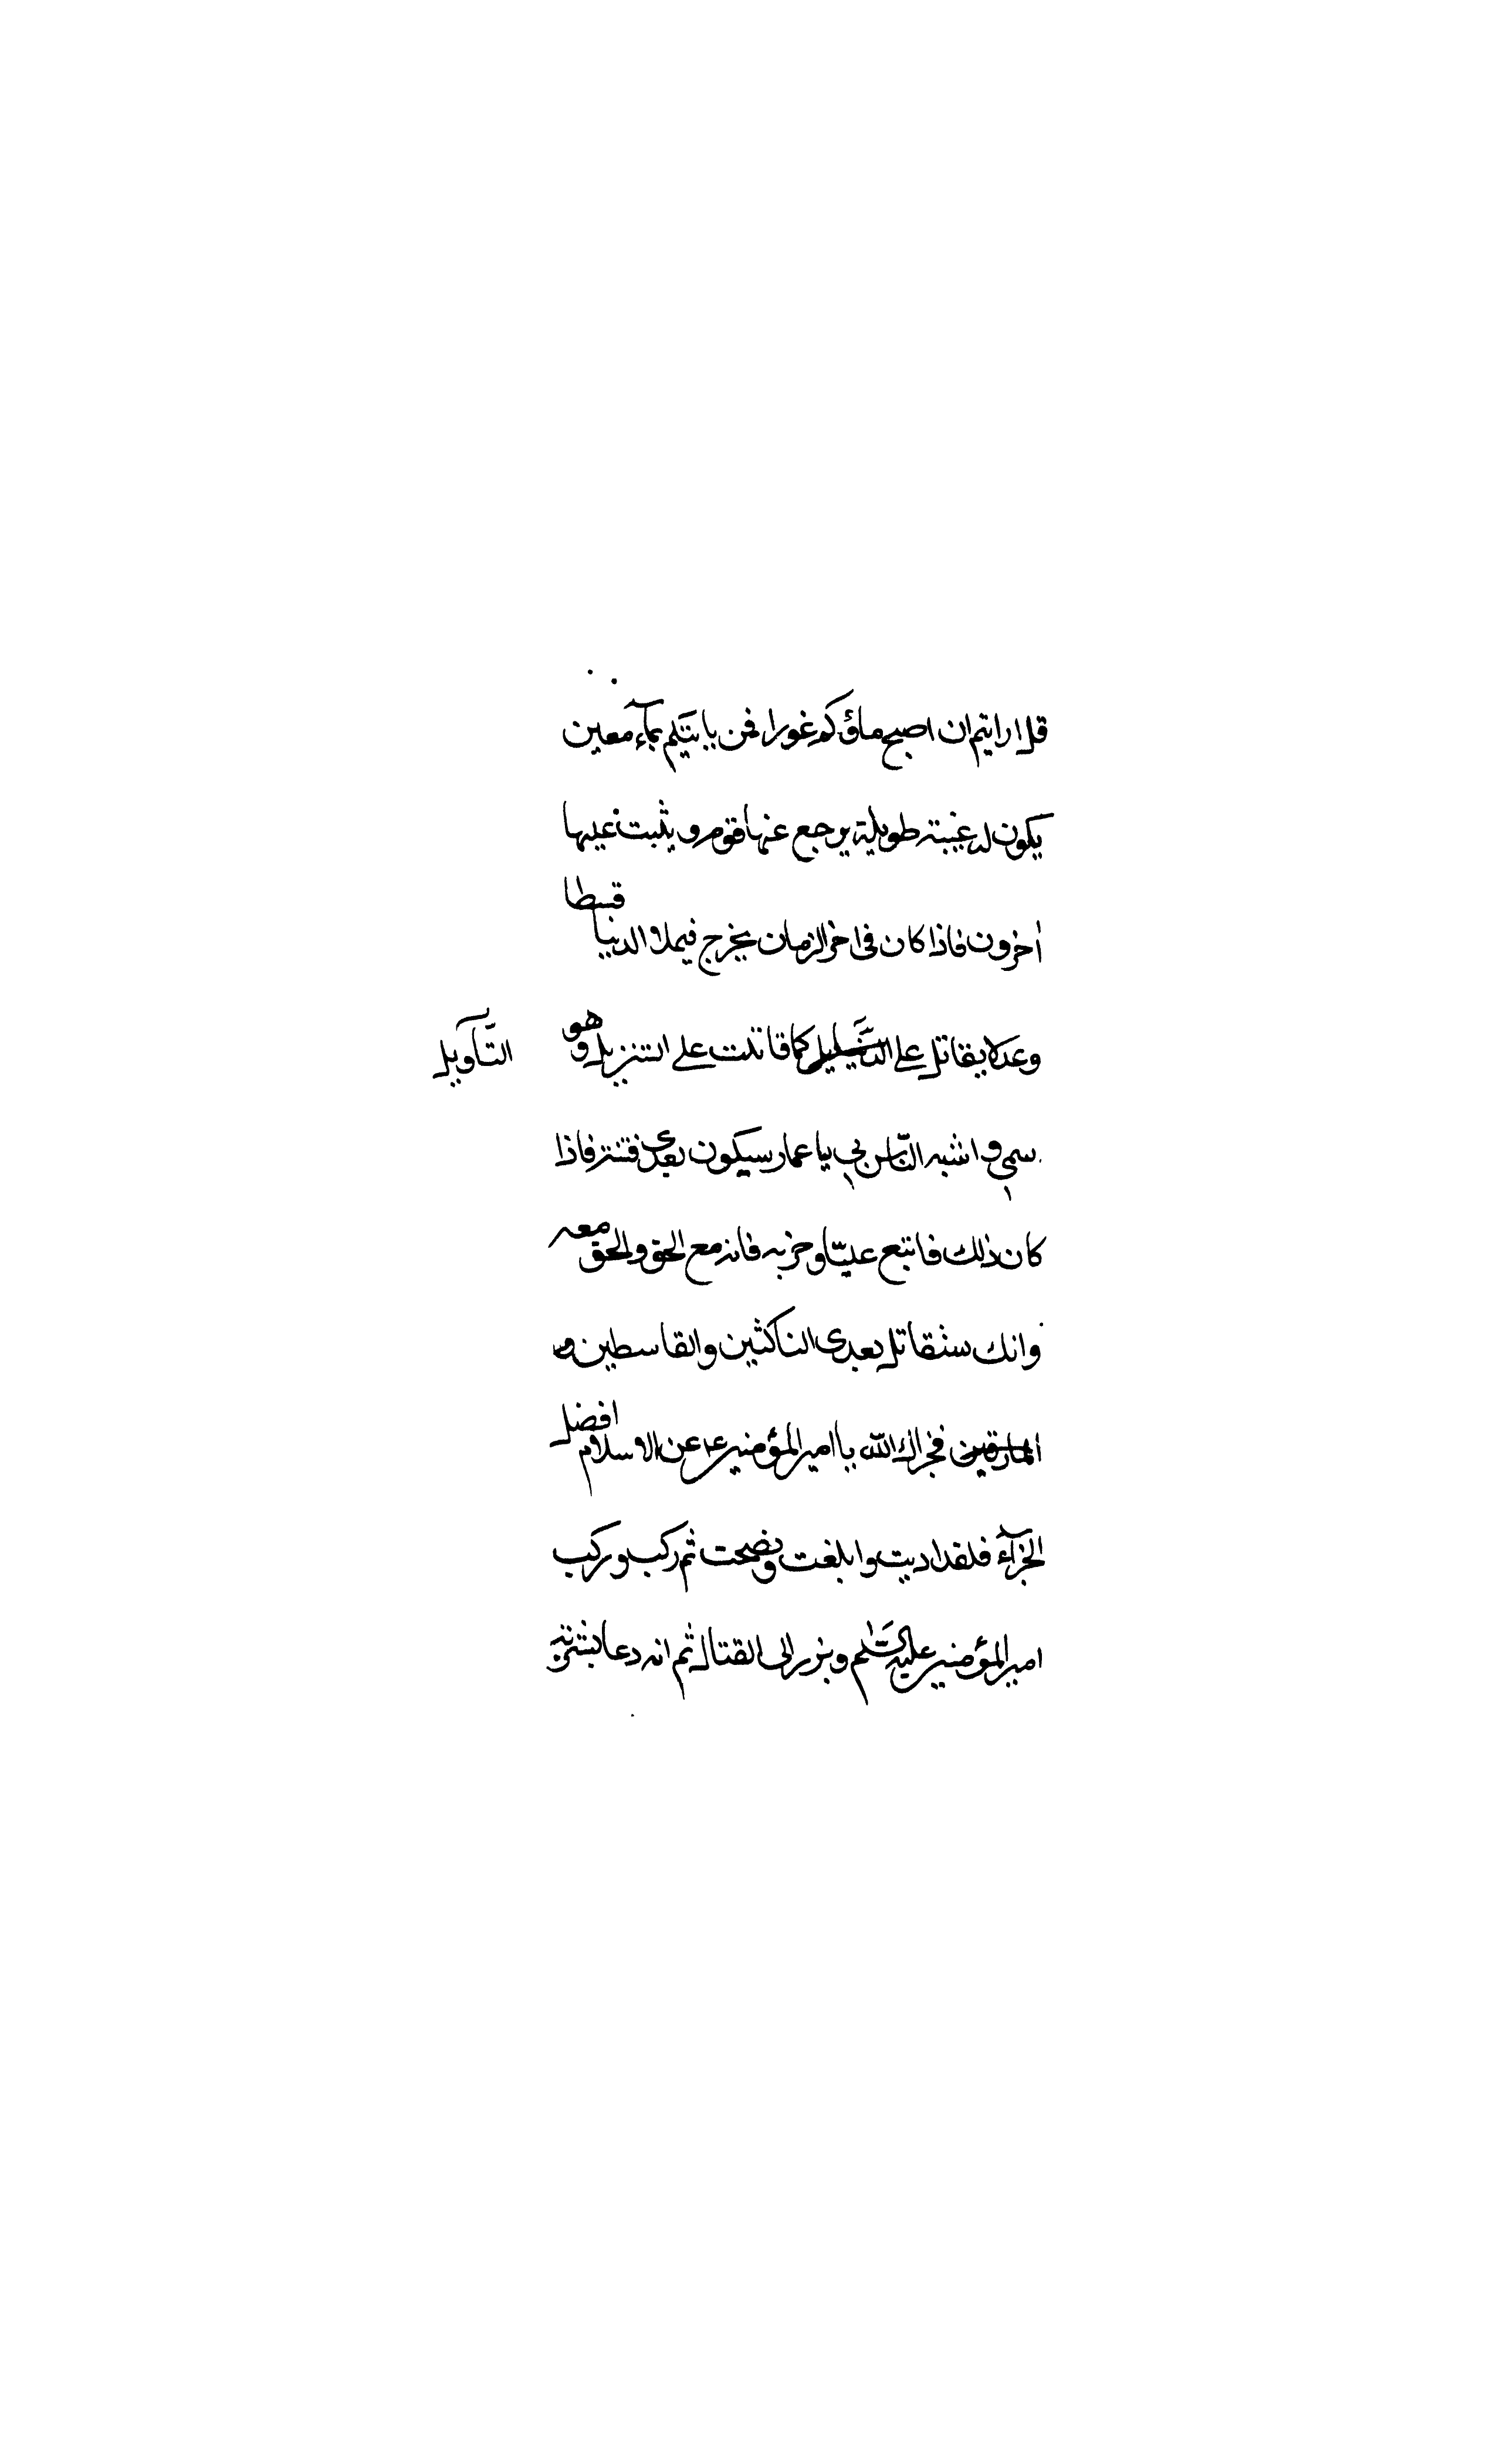 قل ارايتم ان اصبح ماؤكم غورا فمن ياتيكم بمآء معين
يكون له غيبة طويلة يرجع عنها قوم و يثبت عليها
اخرون فاذا كان فى اخر الزمان يخرج فيملاء الدنيا قسطا
وعدلا يقاتل على كما قاتلت على التنزيل و هو
التّآويل
سمي و اشبه النّاس بي يا عمار سيكون بعدى فتنة فاذا
كان ذلك فاتبع عليّا و حزبه فانه مع الحق والحق معه
وانك ستقاتل بعدى الناكثين والقاسطين و
المارقين فجزاك اللّه يا امير المؤمنين عن الاسلام افضل
الجزآء فلقد اديت وابلغت و نصحت ثم ركب و ركب
امير المؤمنين عليه السّلم وبرز الى القتال ثم انه دعا بشربة